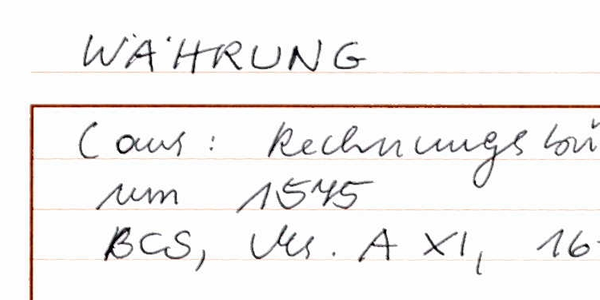 WÄHRUNG
(aus: Rechnungsbü
um 1545
BCS, Ms. A XI, 16